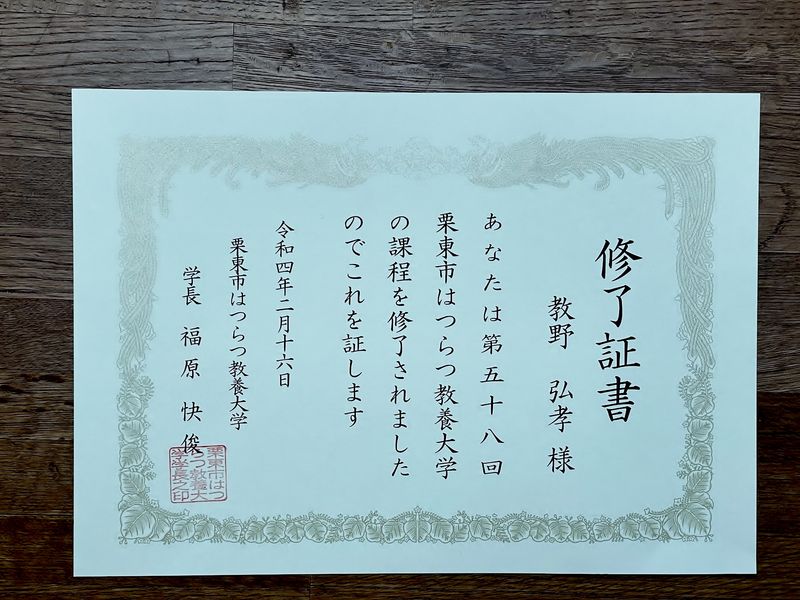 修了証書
教野 弘孝 様
あなたは第五十八回
栗東市はつらつ教養大学
の課程を修了されました
のでこれを証します
令和四年二月十六日
栗東市はつらつ教養大学
学長 福原 快俊
栗東市はつ
らつ教養大
学学長之印